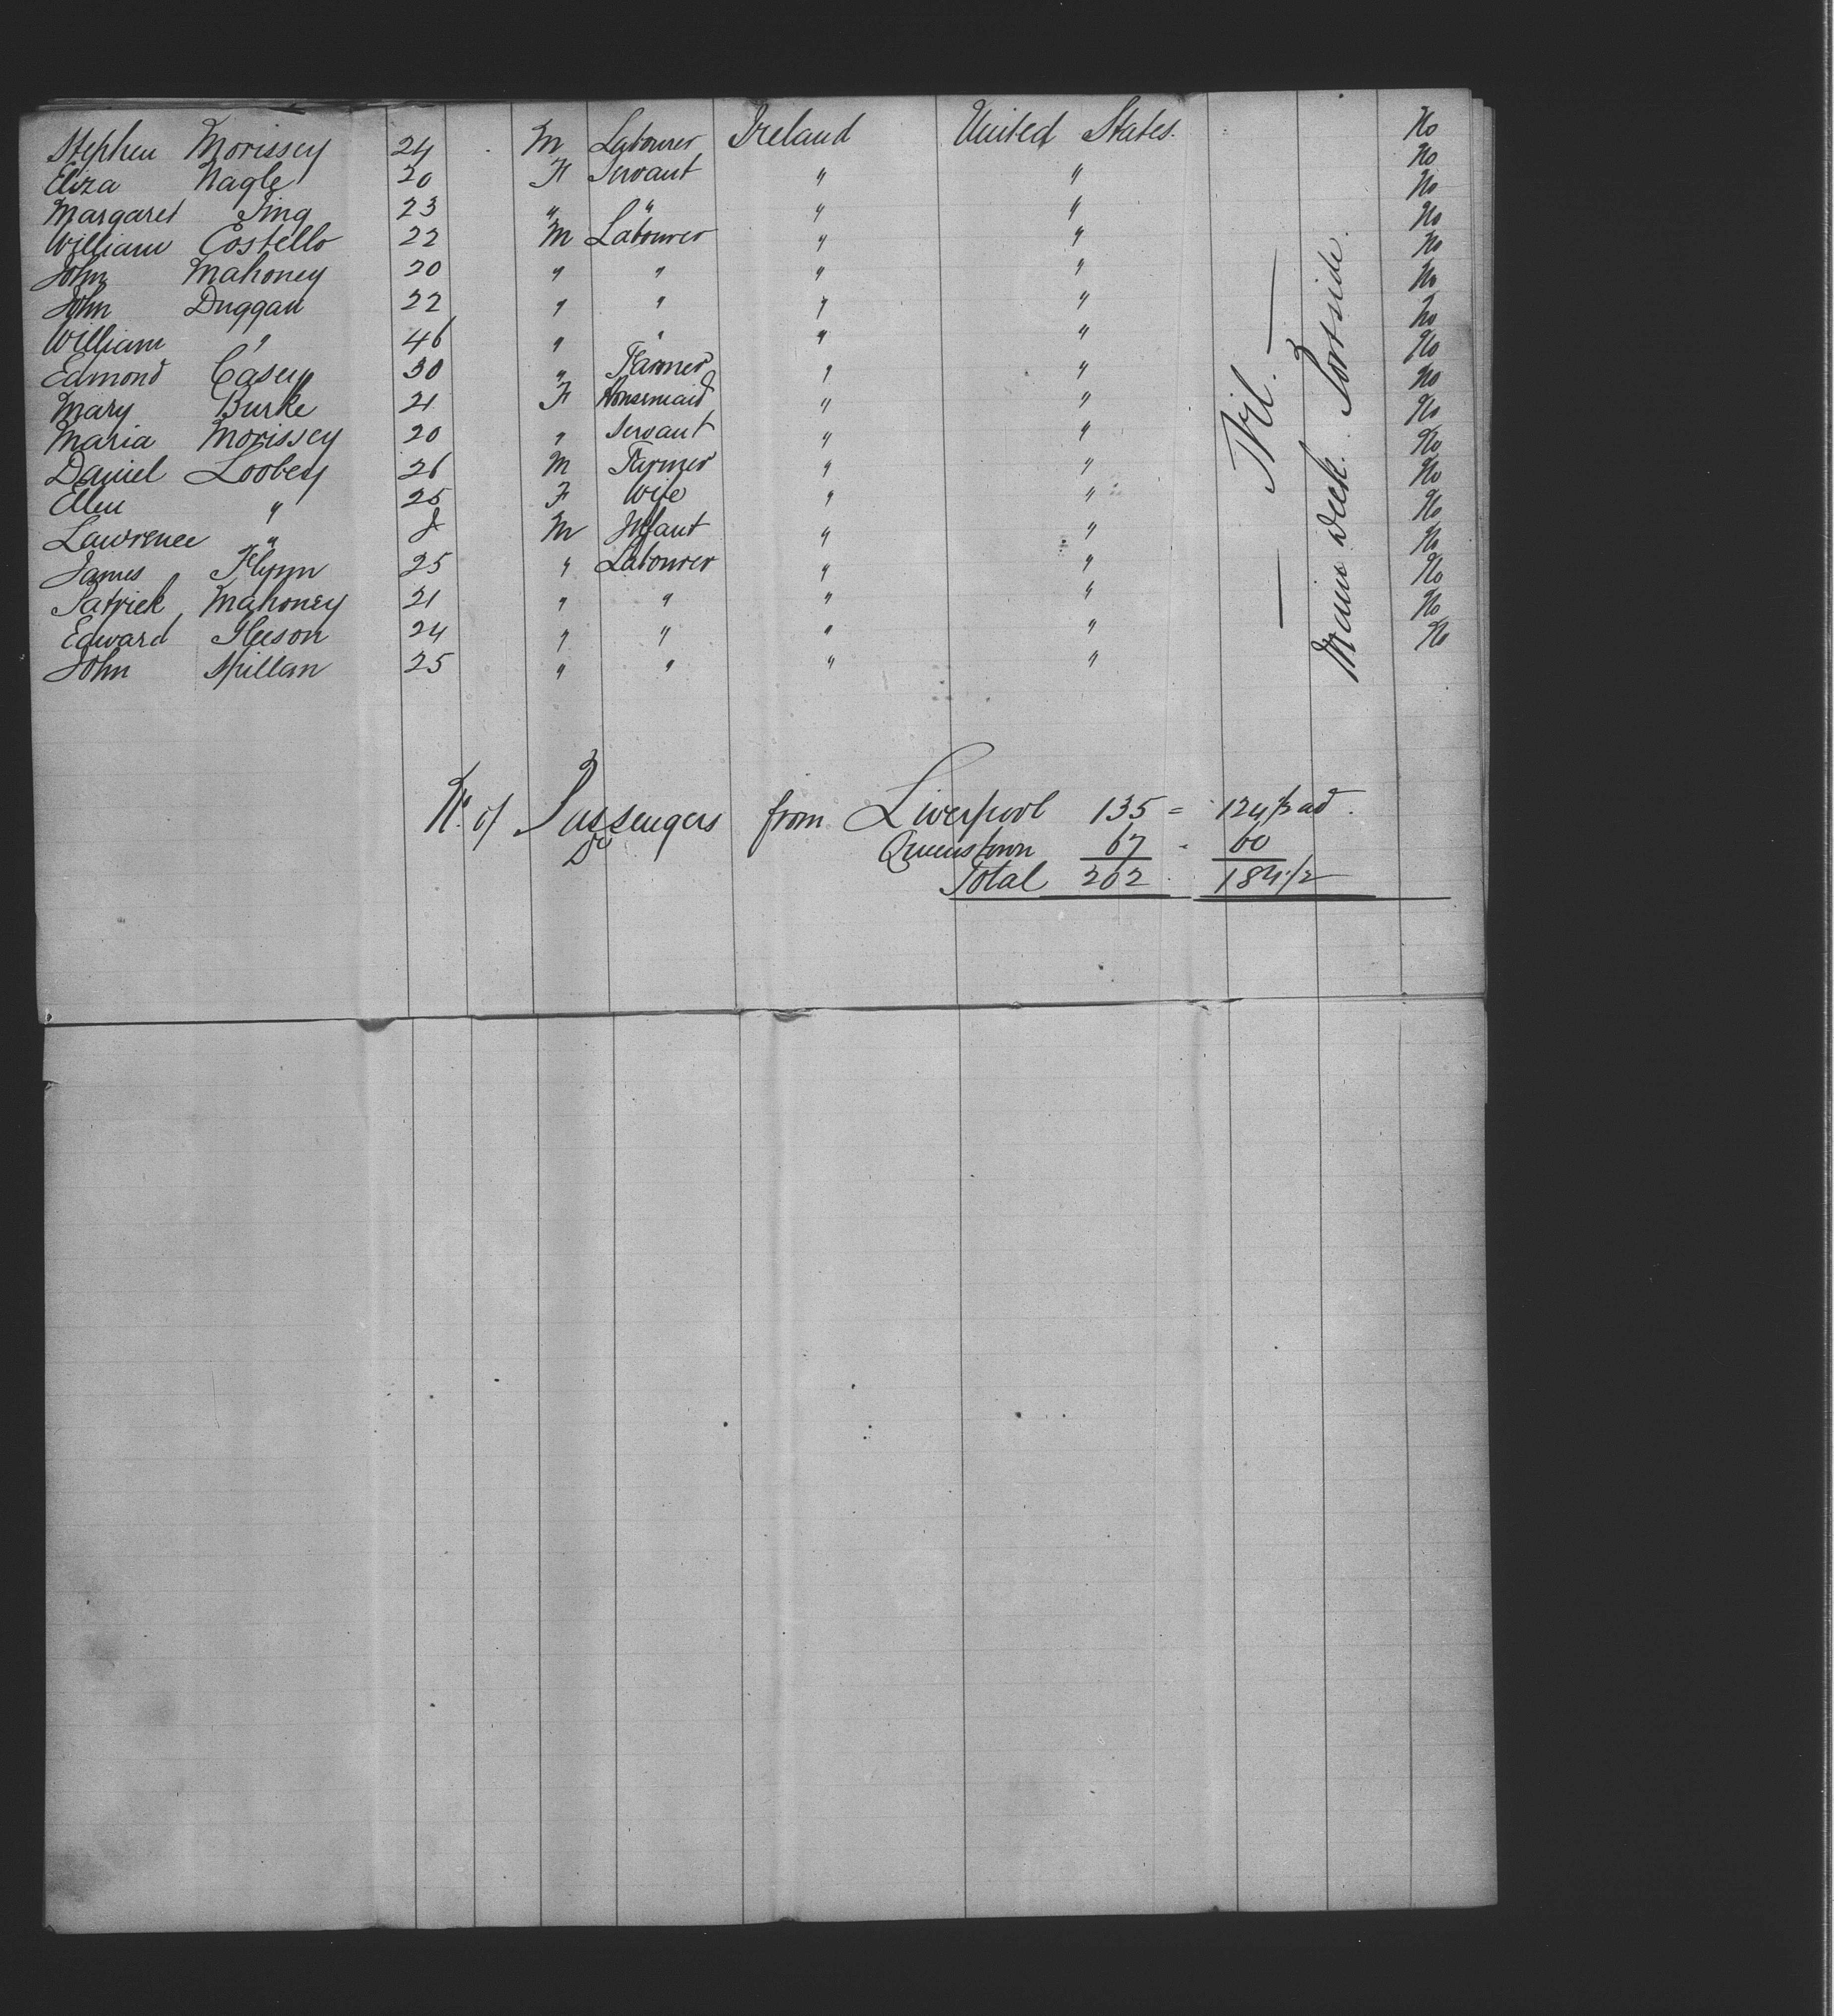 Stephen Morissey 24 M Labourer Ireland United States. No
Eliza Nagle 20 F Servant " " No
Margaret 23 " " " " No
William Costello 22 M Labourer " " No
John Mahoney 20 " " " " No
John Duggan 22 " " " " No
William " 46 " " " " No
Edmond Casey 30 " Farmer " " No
Mary Burke 21 F Housemaid " " No
Maria Morissey 20 " Servant " " No
Daniel Loobey 26 M Farmer " " No
Ellen " 25 F Wife " " No
Lawrence " M Infant " " No
James Flynn 25 " Labourer " " No
Patrick Mahoney 21 " " " " No
Edward Gleeson 24 " " " " No
John Spillan 25 " " " " No
— Nil. —
Main Deck. Portside.
No. of Passengers from Liverpool 135 = 124½ ad.
Do Queenstown 67 - 60
Total 202 . 184½